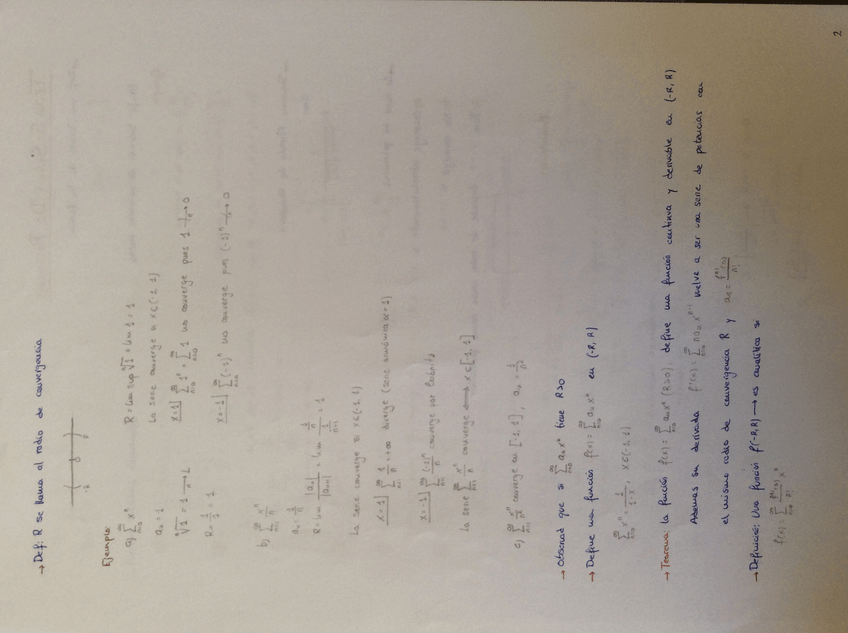 → Def: R se llama el radio de convergencia
-R 0 R
Ejemplo:
a) ∑_{n=0}^∞ x^n
a_n = 1
ⁿ√1 = 1 → L
R = 1/1 = 1
R = lim sup ⁿ√1 = lim 1 = 1
La serie converge si x∈(-1, 1)
x=1| ∑_{n=0}^∞ 1^n = ∑_{n=0}^∞ 1 no converge pues 1 ↛ 0
x=-1| ∑_{n=0}^∞ (-1)^n no converge pues (-1)^n ↛ 0
b) ∑ x^n/n
a_n = 1/n
R = lim |a_n|/|a_{n+1}| = lim (1/n)/(1/(n+1)) = 1
La serie converge si x∈(-1, 1)
x=1| ∑ 1/n → ∞ diverge (serie armónica α=1)
x=-1| ∑ (-1)^n/n converge por Leibniz
La serie ∑ x^n/n converge ⟺ x∈[-1, 1)
c) ∑ x^n/n² converge en [-1, 1], a_n = 1/n²
→ Observad que si ∑_{n=0}^∞ a_n x^n tiene R>0
→ Define una función f(x) = ∑_{n=0}^∞ a_n x^n en (-R, R)
∑_{n=0}^∞ x^n = 1/(1-x), x∈(-1, 1)
→ Teorema: la función f(x) = ∑_{n=0}^∞ a_n x^n (R>0), define una función continua y derivable en (-R, R)
Además su derivada f'(x) = ∑ n a_n x^{n-1} vuelve a ser una serie de potencias con
el mismo radio de convergencia R y a_n = f^{(n)}(0)/n!
→ Definición: Una función f(-R, R) → es analítica si
f(x) = ∑_{n=0}^∞ f^{(n)}(0)/n! x^n
2